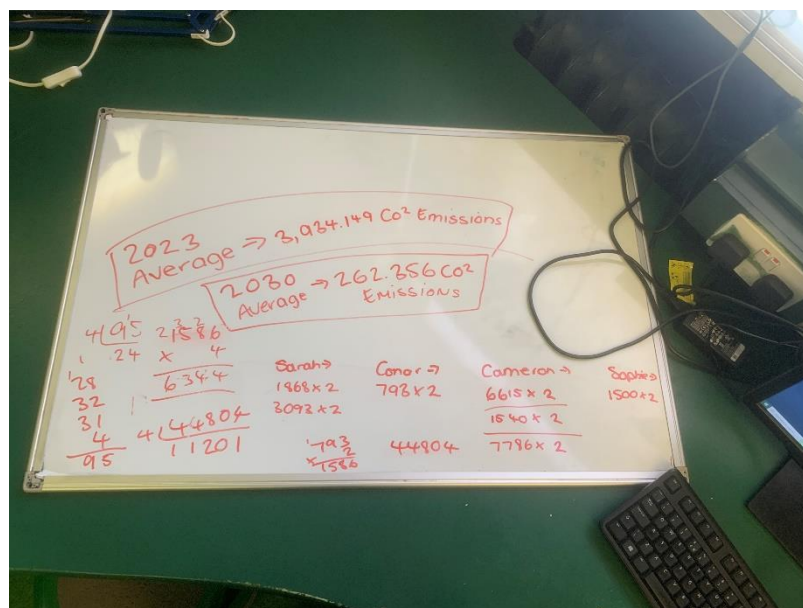 2023
Average → 3,934.149 Co² Emissions
2030
Average → 262.356 Co²
Emissions
4 95
24
28
32
31
4
95
2 2
1586
x 4
6344
4 44804
11201
Sarah →
1868 x 2
3093 x 2
Conor →
793 x 2
Cameron →
6615 x 2
1540 x 2
7786 x 2
Sophie →
1500 x 2
793
x 2
1586
44804